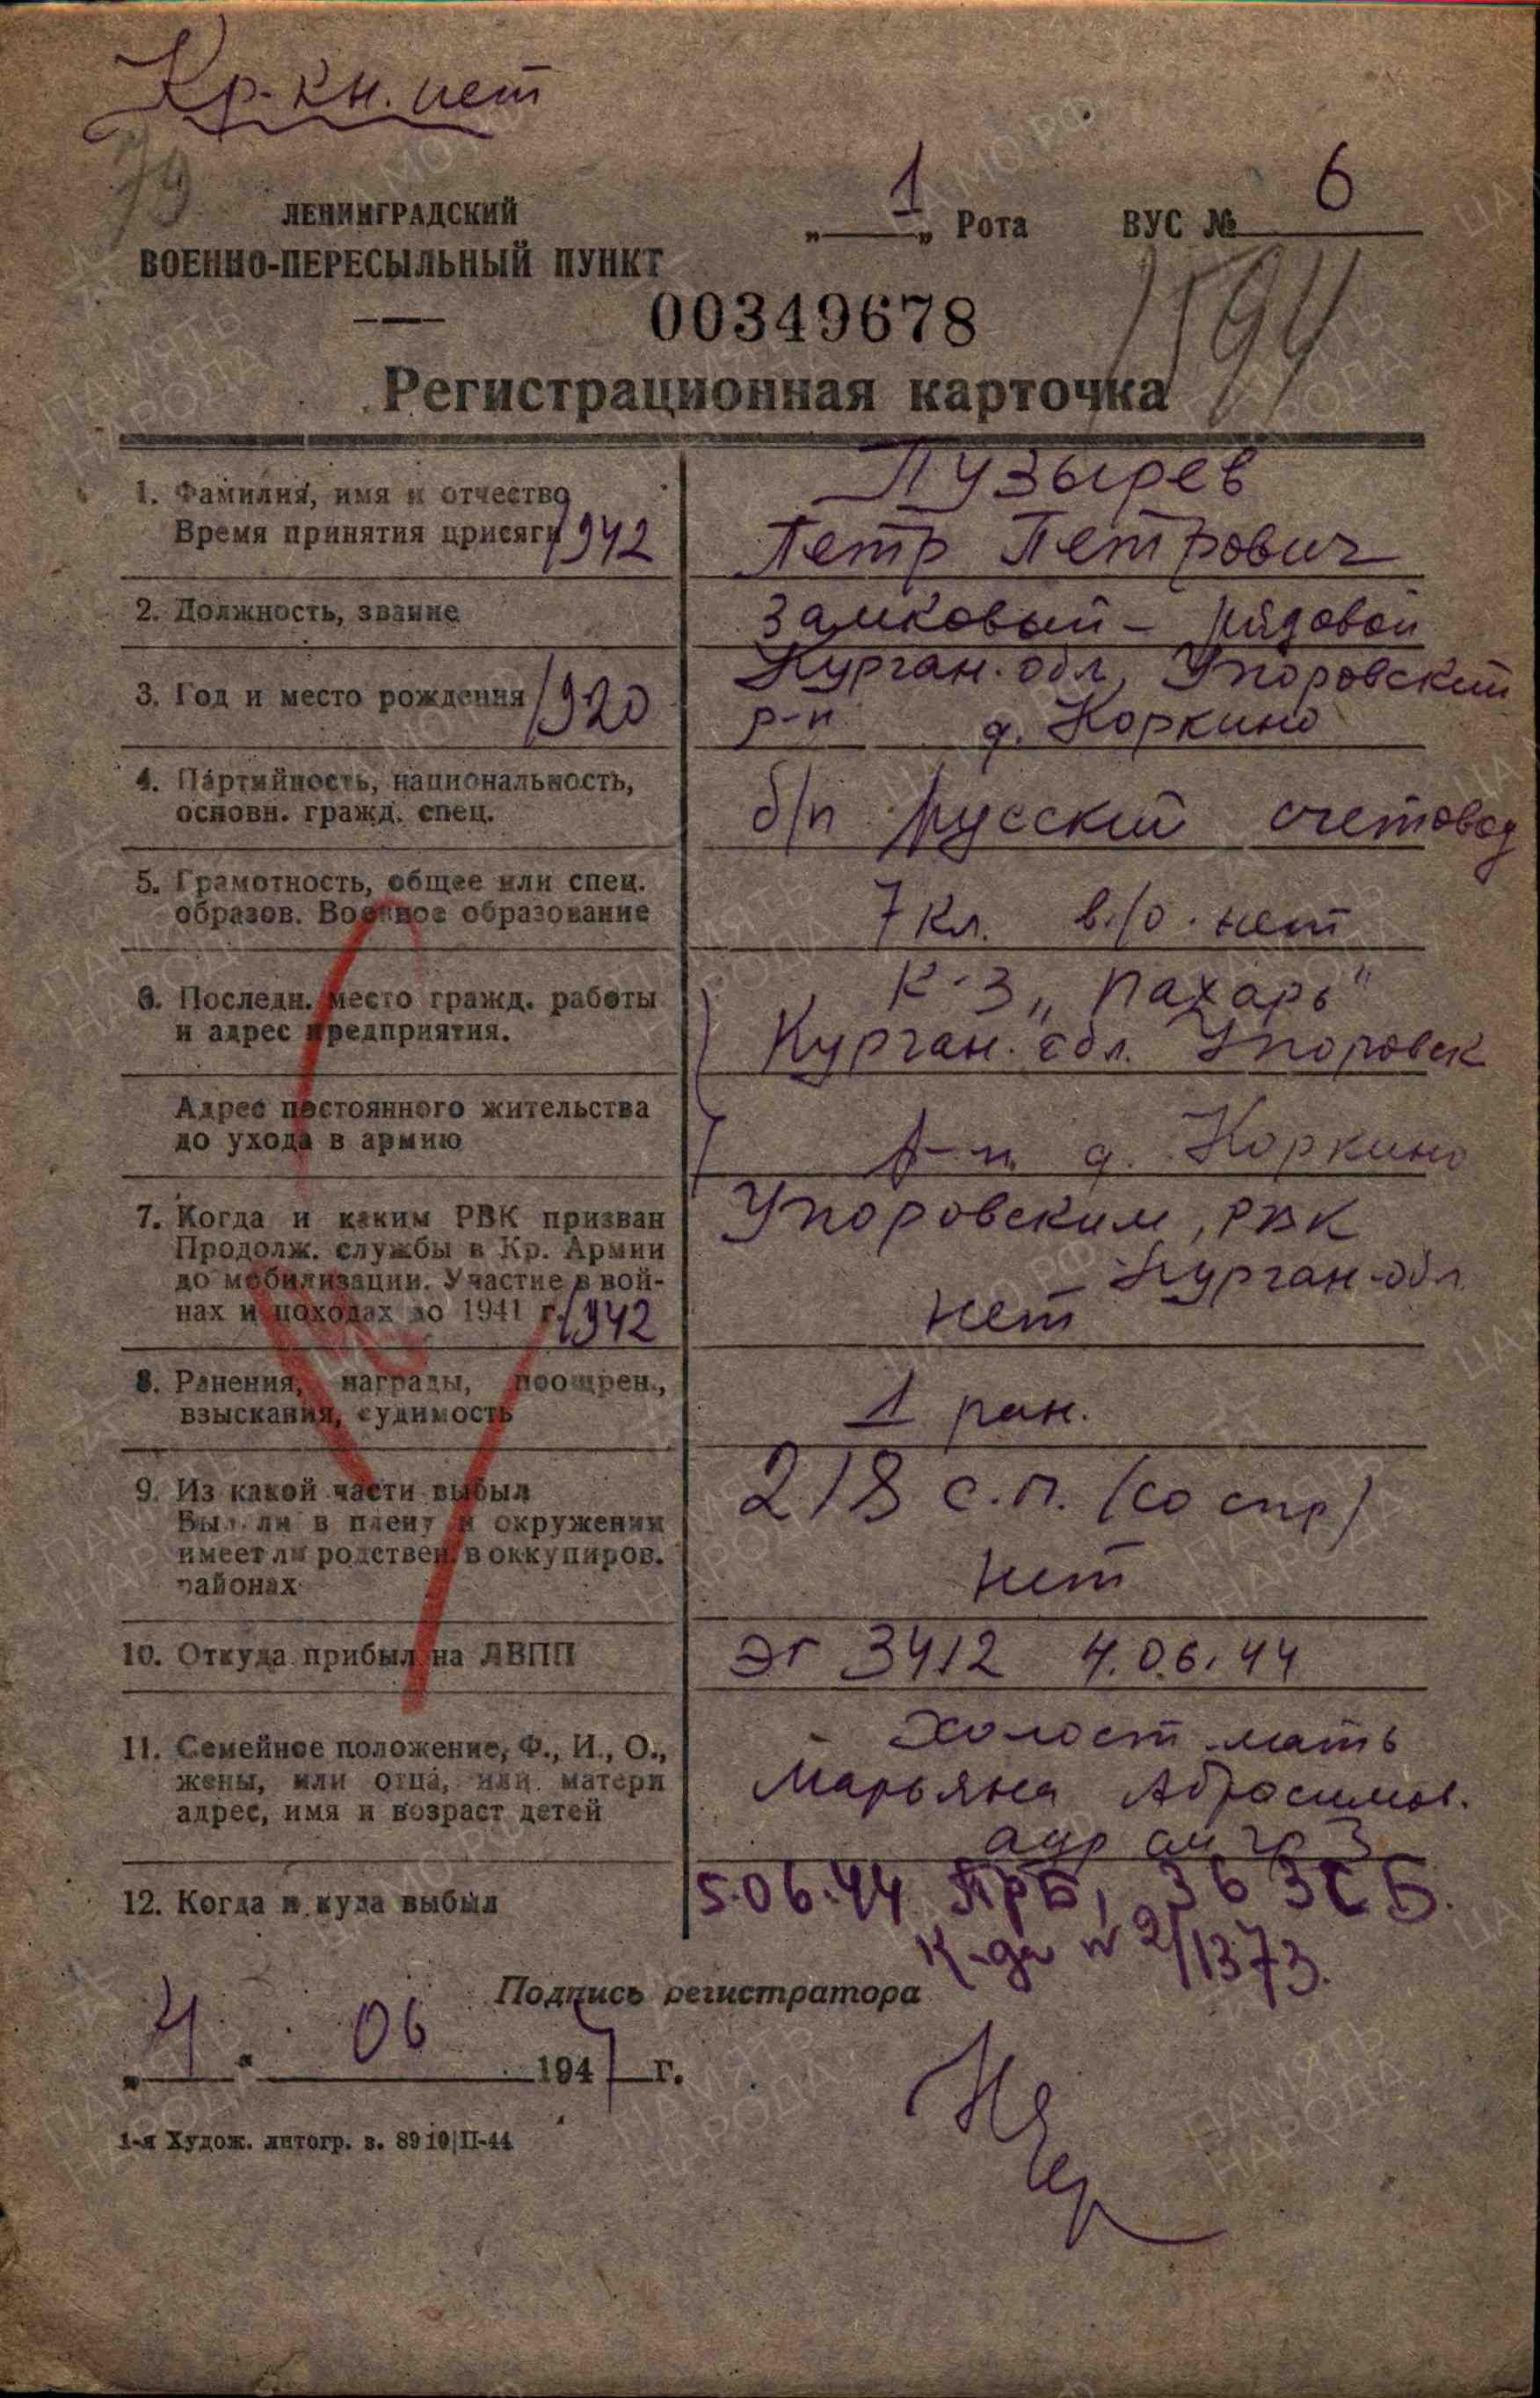 Кр-кн. нет
79
ЛЕНИНГРАДСКИЙ
ВОЕННО-ПЕРЕСЫЛЬНЫЙ ПУНКТ
„ 1 „ Рота ВУС № 6
00349678
1594
Регистрационная карточка
1. Фамилия, имя и отчество
Время принятия присяги 1942
Пузырев
Петр Петрович
2. Должность, звание
замковый - рядовой
3. Год и место рождения 1920
Курган. обл, Упоровский
р-н д. Коркино
4. Партийность, национальность,
основн. гражд. спец.
б/п русский счетовод
5. Грамотность, общее или спец.
образов. Военное образование
7 кл. в./о. нет
6. Последн. место гражд. работы
и адрес предприятия.
К-З „Пахарь"
Курган. обл. Упоровск
Адрес постоянного жительства
до ухода в армию
р-н д. Коркино
7. Когда и каким РВК призван
Продолж. службы в Кр. Армии
до мобилизации. Участие в вой-
нах и походах до 1941 г. 1942
Упоровским, РВК
Курган-обл
нет
8. Ранения, награды, поощрен.,
взыскания, судимость
1 ран.
9. Из какой части выбыл
Был ли в плену и окружении
имеет ли родствен. в оккупиров.
районах
218 с.п. (со спр)
нет
10. Откуда прибыл на ЛВПП
ЭГ 3412 4.06.44
11. Семейное положение, Ф., И., О.,
жены, или отца, или матери
адрес, имя и возраст детей
холост мать
Марьяна Абросимов.
адр см гр 3
12. Когда и куда выбыл
5.06.44 ПрБ, 36 ЗСБ.
К-да № 2/1373.
Подпись регистратора
„ 4 " 06 1944 г.
1-я Худож. литогр. з. 8910|II-44